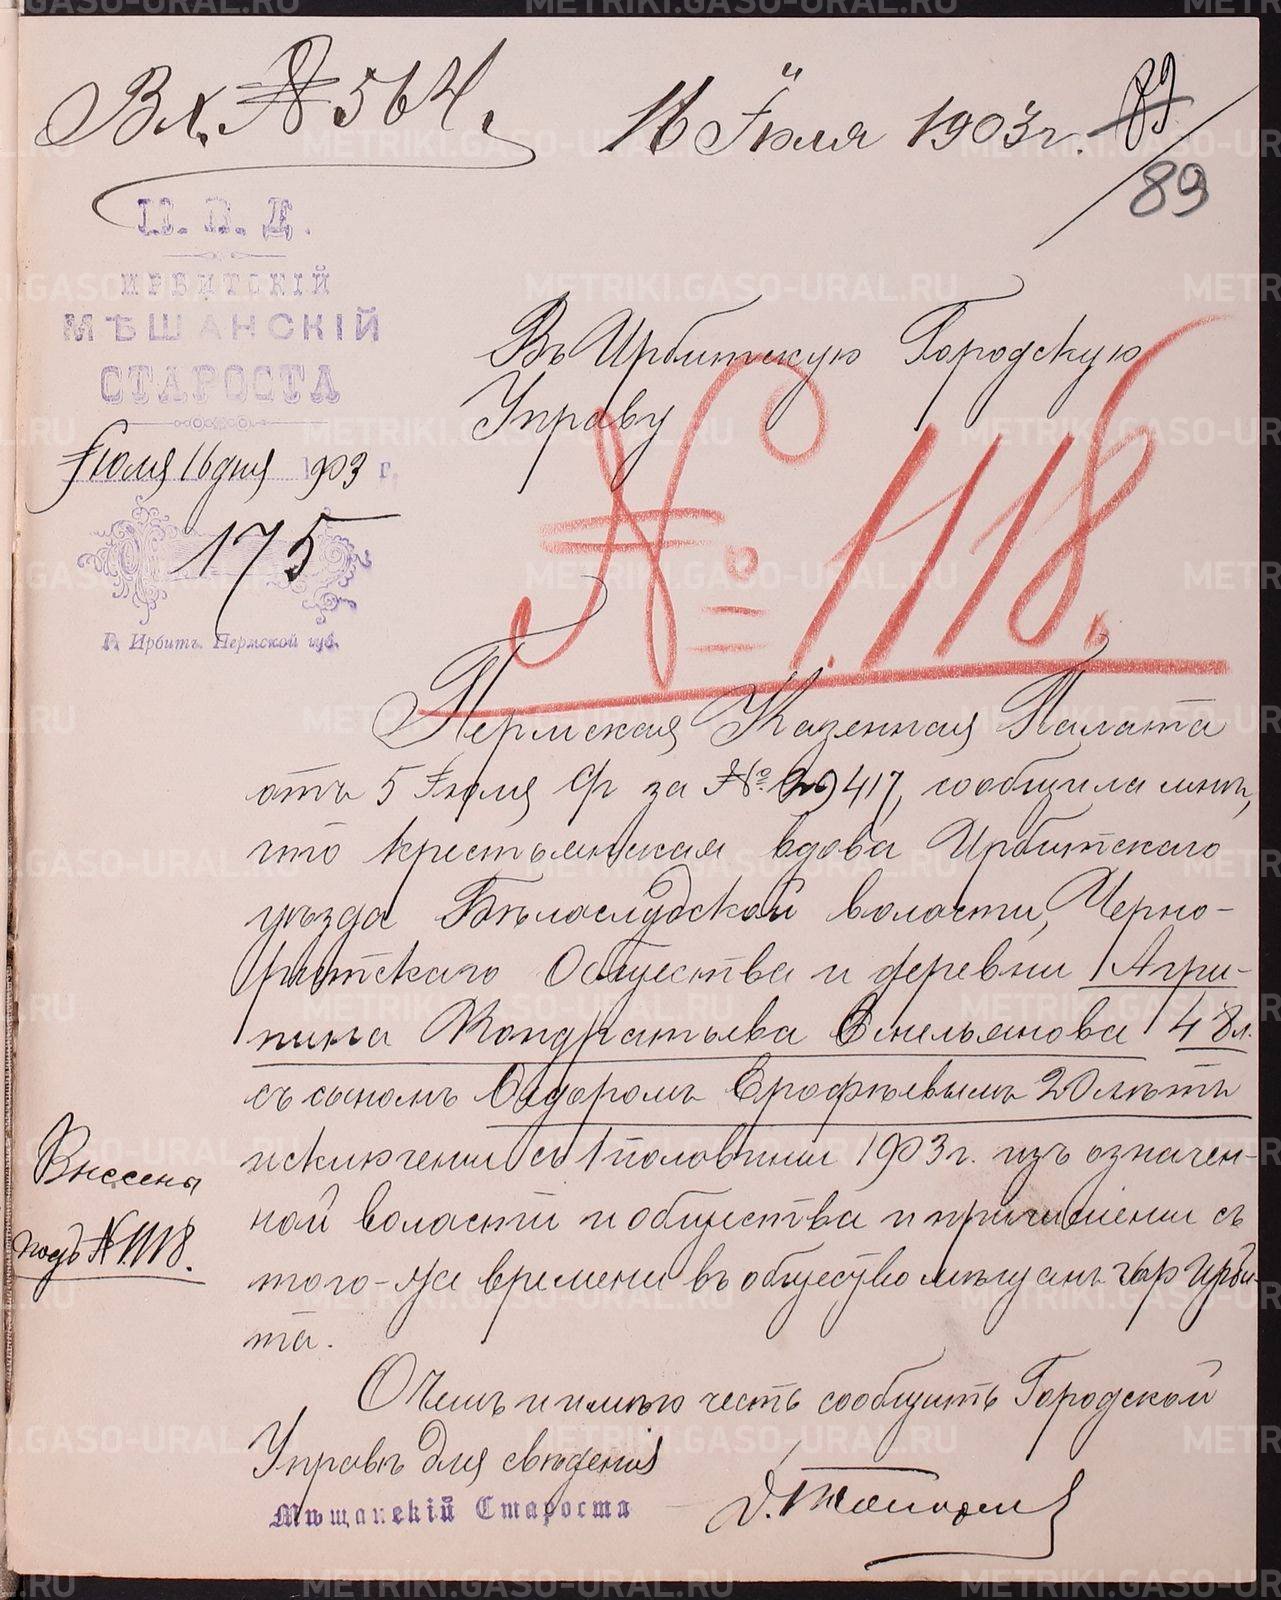 Вх. № 564.
16 Іюля 1903 г.
89
89
П. В. Д.
ИРБИТСКІЙ
МѢЩАНСКІЙ
СТАРОСТА
Іюля 16 дня 1903 г.
175
Г. Ирбитъ Пермской губ.
Въ Ирбитскую Городскую
Управу
№ 1118.
Пермская Казенная Палата
отъ 5 Іюля за № 29417, сообщила мнѣ,
что крестьянская вдова Ирбитскаго
уѣзда Бѣлослудской волости, Черно-
Общества и деревни Агри-
пина Кондратьева Емельянова 48 л.
съ сыномъ Сидоромъ Ерофѣевымъ 20 лѣтъ
исключены съ 1 половины 1903 г. изъ означен-
ной волости и общества и причислены съ
того-же времени въ общество мѣщанъ гор Ирби-
та.
О чемъ и имѣю честь сообщить Городской
Управѣ для свѣденія
Мѣщанскій Староста
Внесены
подъ № 1118.
METRIKI.GASO-URAL.RU